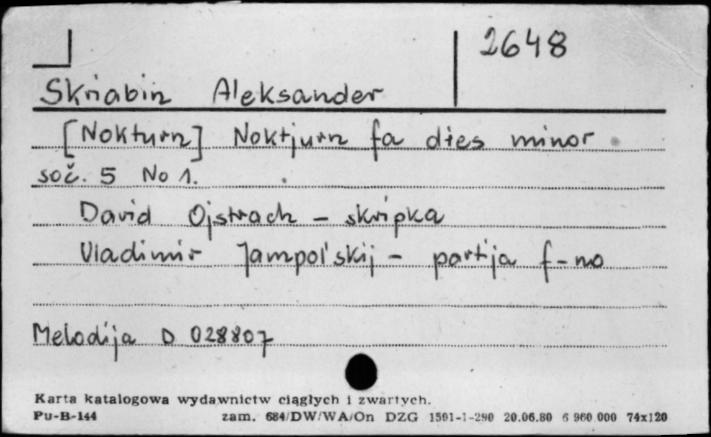 2648
Skriabin Aleksander
[Nokturn] Noktjurn fa dies minor
soč. 5 No 1.
David Ojstrach - skripka
Vladimir Jampol'skij - partija f-no
Melodija D 028807
Karta katalogowa wydawnictw ciągłych i zwartych.
Pu-B-144 zam. 684/DW/WA/On DZG 1501-1-290 20.06.80 6 960 000 74x120